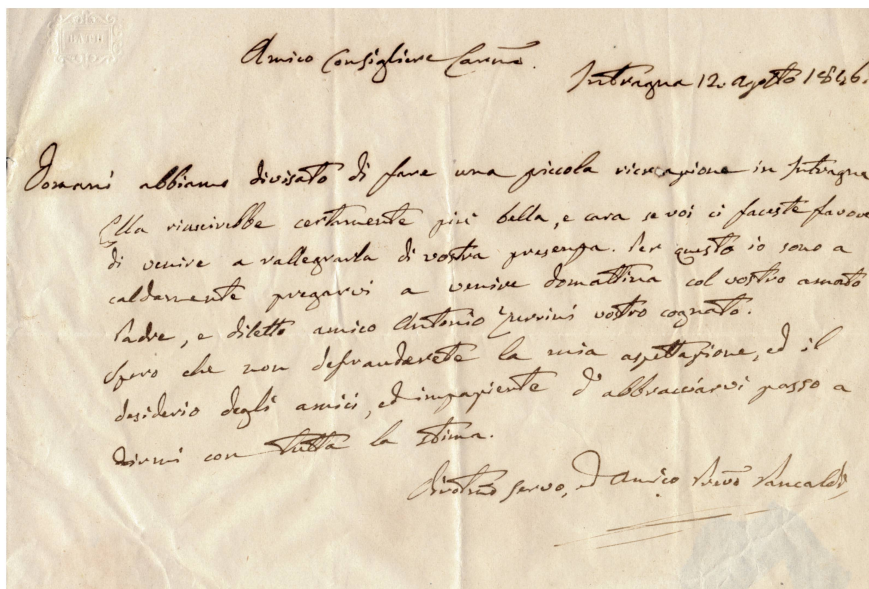 BATH
Amico Consigliere Carmo.
Intragna 12. agosto 1846.
Domani abbiamo divisato di fare una piccola ricreazione in Intragna
Ella riuscirebbe certamente più bella, e cara se voi ci faceste favore
di venire a rallegrarla di vostra presenza. Per questo io sono a
caldamente pregarvi a venire domattina col vostro amato
Padre, e diletto amico Antonio vostro cognato.
Spero che non defrauderete la mia aspettazione, ed il
desiderio degli amici, ed impaziente d'abbracciarvi passo a
dirmi con tutta la stima.
servo, ed Amico Pancaldi